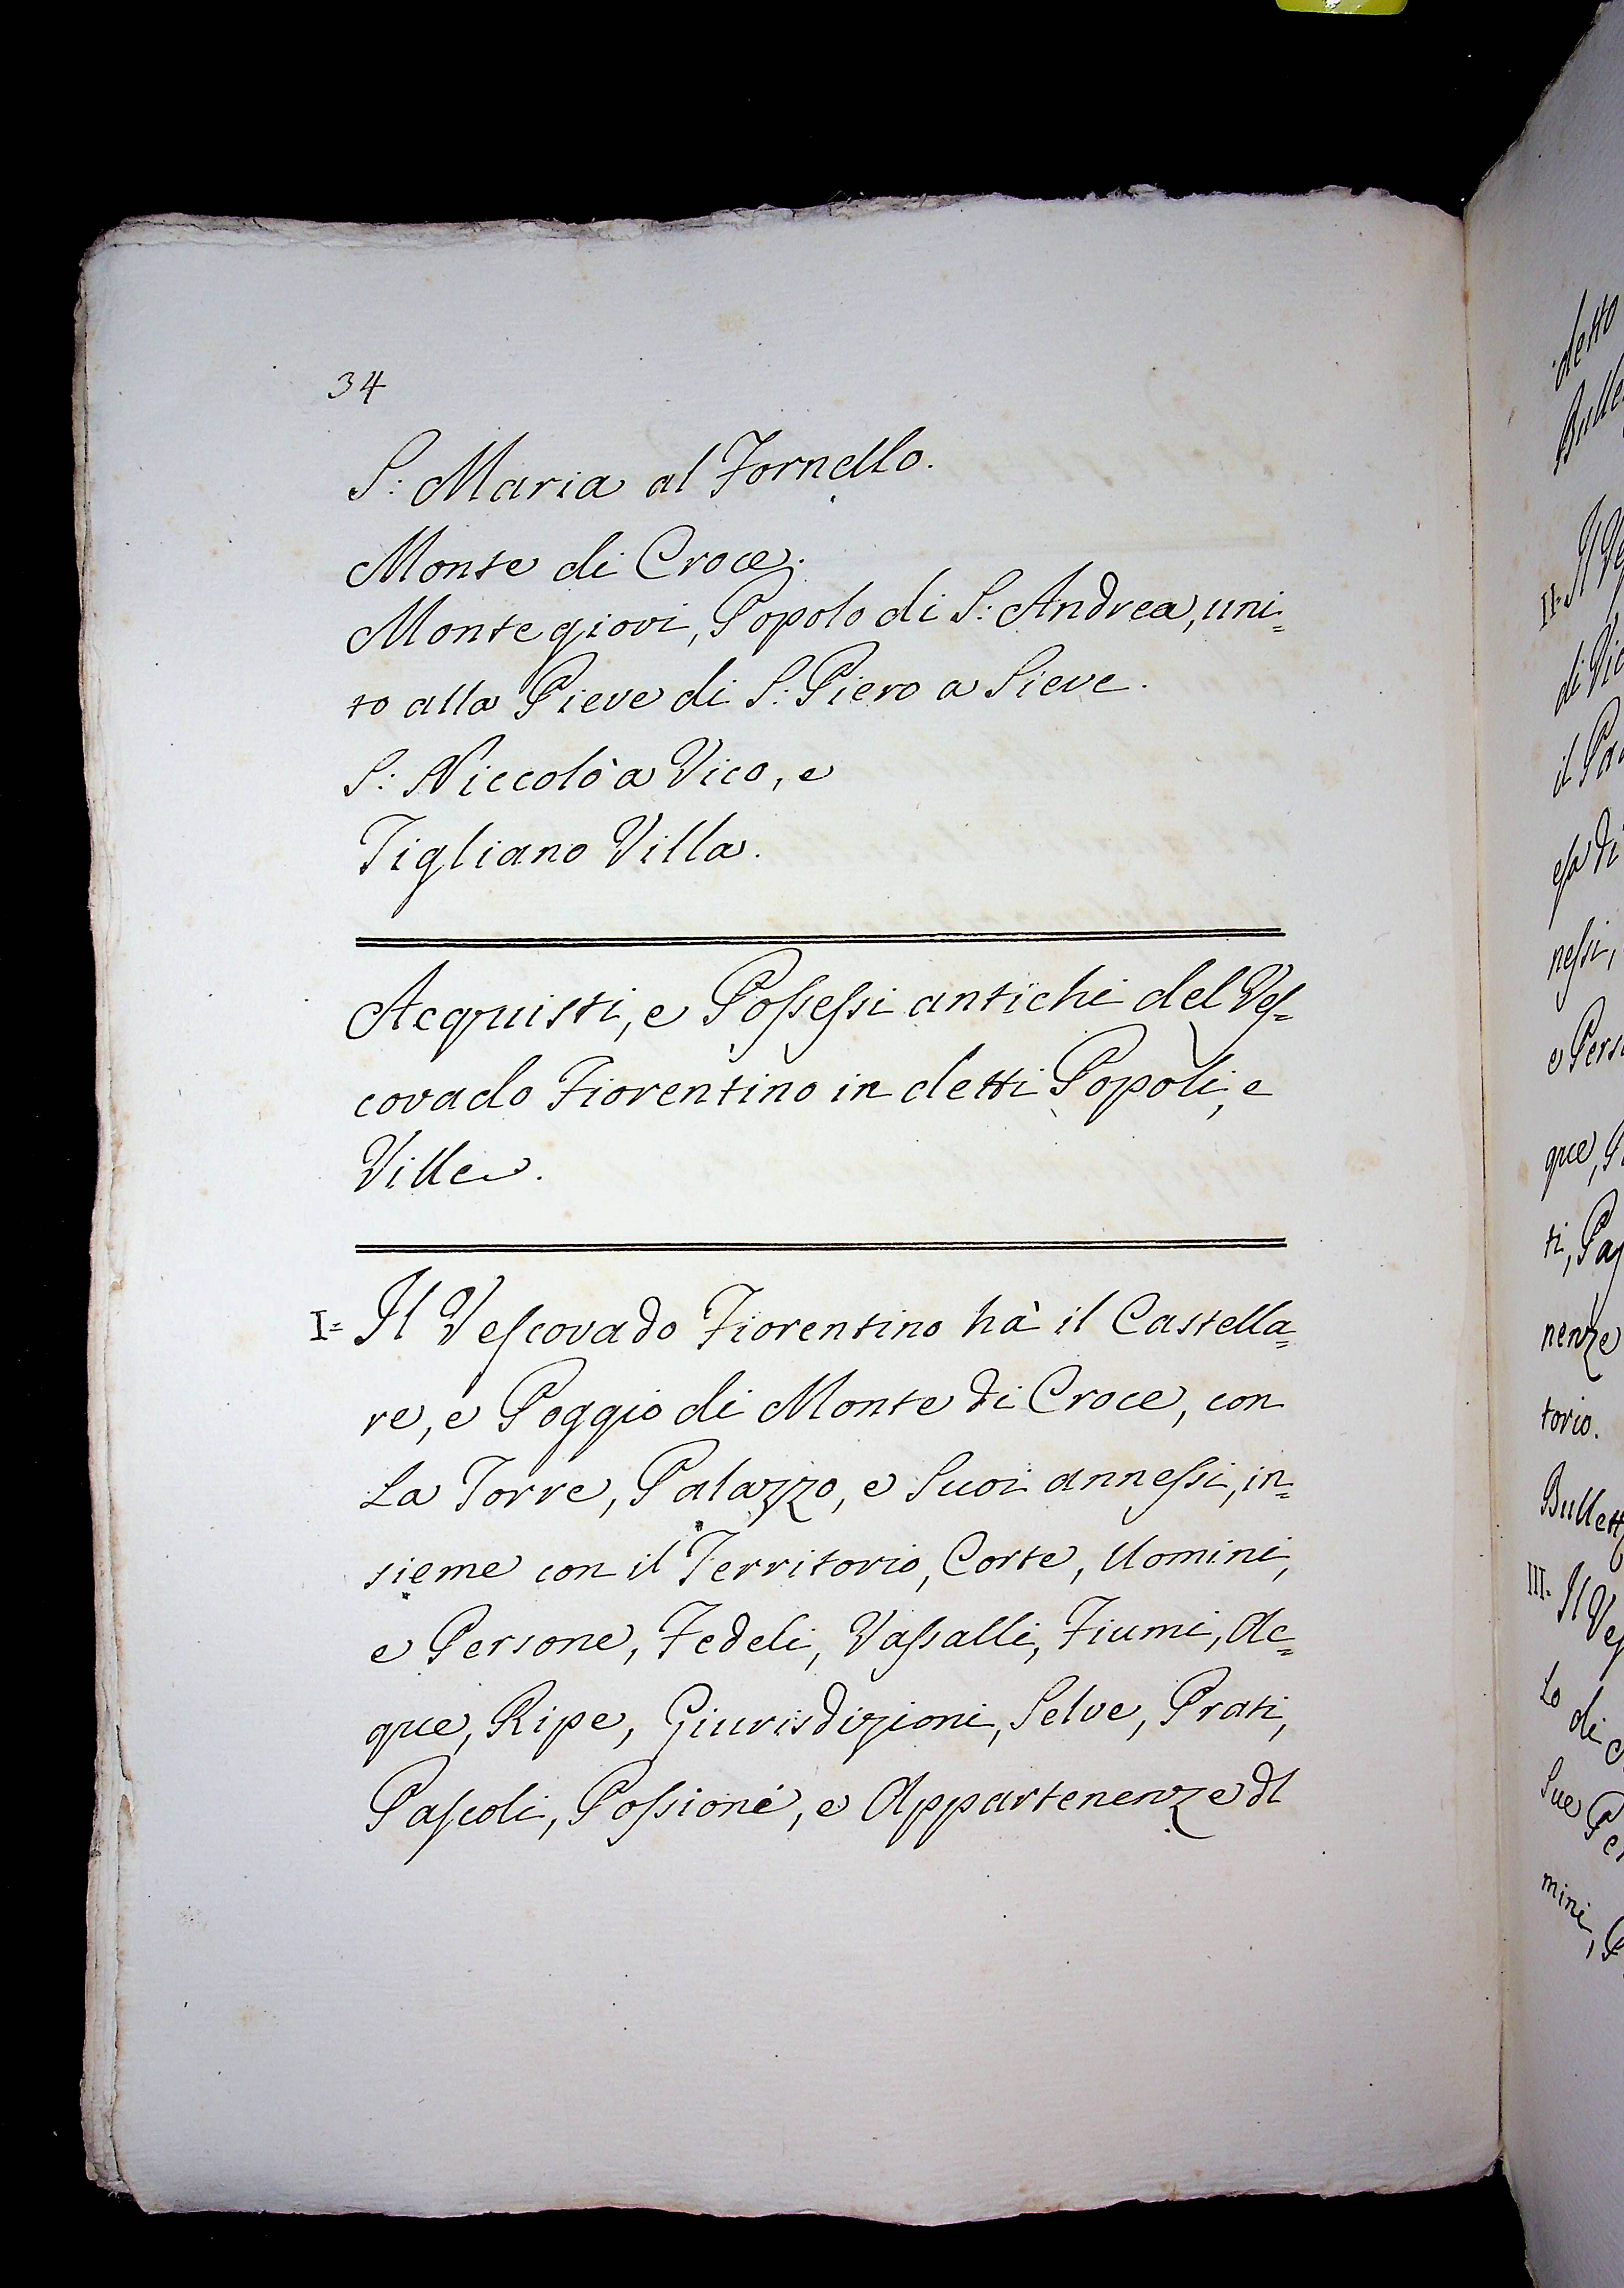 34
S: Maria al Fornello.
Monte di Croce.
Montegiovi, Popolo di S: Andrea, uni=
to alla Pieve di S: Piero a Sieve.
S: Niccolò a Vico, e
Tigliano Villa.
Acquisti, e Poſseſsi antichi del Veſ=
covado Fiorentino in detti Popoli, e
Ville.
I= Il Veſcovado Fiorentino hà il Castella=
re, e Poggio di Monte di Croce, con
La Torre, Palazzo, e Suoi anneſsi, in=
sieme con il Territorio, Corte, Uomini,
e Persone, Fedeli, Vaſsalli, Fiumi, Ac=
que, Ripe, Giurisdizioni, Selve, Prati,
Paſcoli, Poſsioni, e Appartenenze dl
detto
II=
di Vic
neſsi,
que,
nenze
torio.
III=
Lo di
Sue
mini,